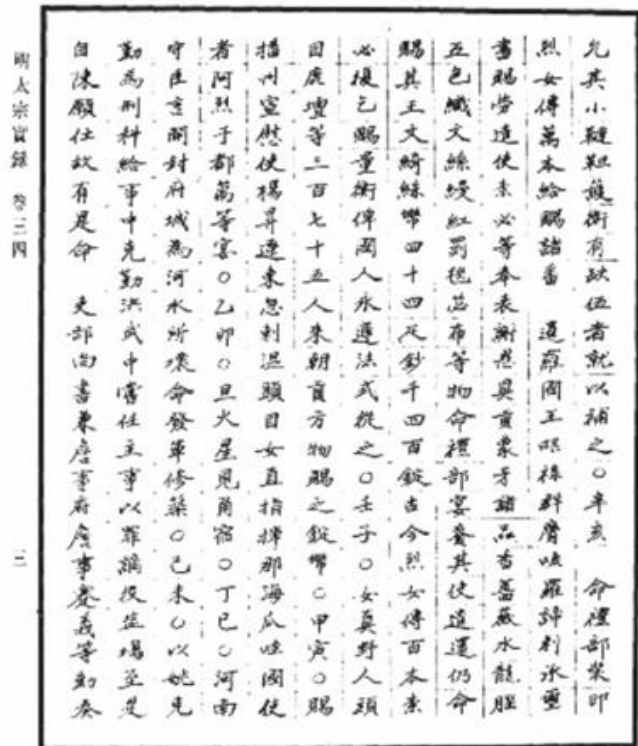 允其小韃靼護衛有缺伍者就以補之○辛亥　命禮部裝印
烈女傳萬本給賜諸番　暹羅國王昭祿群膺哆羅諦剌派璽
書賜勞遣使柰必等奉表謝恩具貢象牙諸品香薔薇水龍腦
五色織文絲縵紅罽毯苾布等物命禮部宴賚其使遣還仍命
賜其王文綺絲幣四十四疋鈔千四百錠古今烈女傳百本柰
必復乞賜量衡俾國人永遵法式從之○壬子○女真野人頭
目鹿壇等三百七十五人來朝貢方物賜之錠幣○甲寅○賜
播州宣慰使楊昇遼東忽剌溫頭目女直指揮那海瓜哇國使
者阿烈于都萬等宴○乙卯○旦火星見角宿○丁巳○河南
守臣言開封府城為河水所壞命發軍修築○己未○以姚克
勤為刑科給事中克勤洪武中嘗任主事以罪謫役塩場至是
自陳願仕故有是命　吏部尚書兼詹事府詹事蹇義等劾奏
明太宗實錄　卷三四